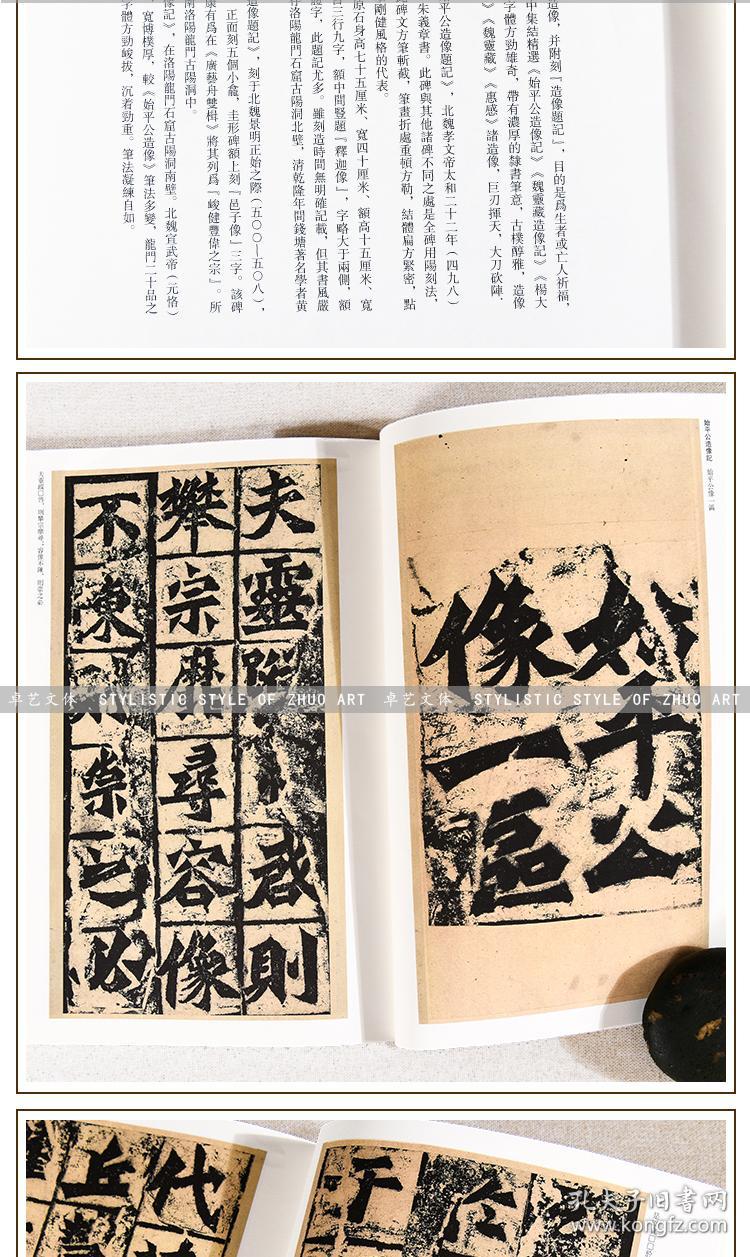 造像，并附刻『造像題記』，目的是爲生者或亡人祈福，
中集結精選《始平公造像記》《魏靈藏造像記》《楊大
字體方勁雄奇，帶有濃厚的隸書筆意，古樸醇雅，造像
》《魏靈藏》《惠感》諸造像，巨刃揮天，大刀砍陣．
平公造像題記》，北魏孝文帝太和二十二年（四九八）
朱義章書。此碑與其他諸碑不同之處是全碑用陽刻法，
碑文方筆斬截，筆畫折處重頓方勒，結體扁方緊密，點
剛健風格的代表。
原石身高七十五厘米、寬四十厘米、額高十五厘米、寬
三行九字，額中間豎題『釋迦像』，字略大于兩側，額
證字，此題記尤多。雖刻造時間無明確記載，但其書風嚴
存洛陽龍門石窟古陽洞北壁，清乾隆年間錢塘著名學者黄
造像題記》，刻于北魏景明正始之際（五〇〇—五〇八），
正面刻五個小龕，圭形碑額上刻『邑子像』三字。該碑
康有爲在《廣藝舟雙楫》將其列爲『峻健豐偉之宗』。所
南洛陽龍門古陽洞中。
像記》，在洛陽龍門石窟古陽洞南壁。北魏宣武帝（元恪）
，寬博樸厚，較《始平公造像》筆法多變，龍門二十品之
字體方勁峻拔，沉着勁重。筆法凝練自如。
始平公造像記 始平公像一區
始平公
像一區
夫靈蹤□啓則
攀宗靡尋容像
不陳則崇之必
夫靈蹤□啓，則攀宗靡尋；容像不陳，則崇之必
卓艺文体 · STYLISTIC STYLE OF ZHUO ART
卓艺文体 · STYLISTIC STYLE OF ZHUO ART
代
丘
于
孔夫子旧书网
www.kongfz.com